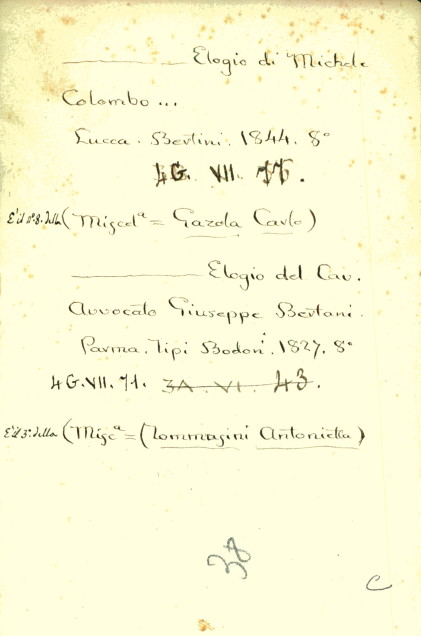 ——— Elogio di Michele
Colombo...
Lucca. Bertini. 1844. 8°
4G. VII. 77.
È il n° 8. della (Misced.ª = Gazola Carlo)
——— Elogio del Cav.
Avvocato Giuseppe Bertani.
Parma. Tipi Bodoni. 1827. 8°
4G.VII.71. 3A.VI. 43.
È il 3°. della (Misc.ª = (Tommasini Antonietta)
38
C